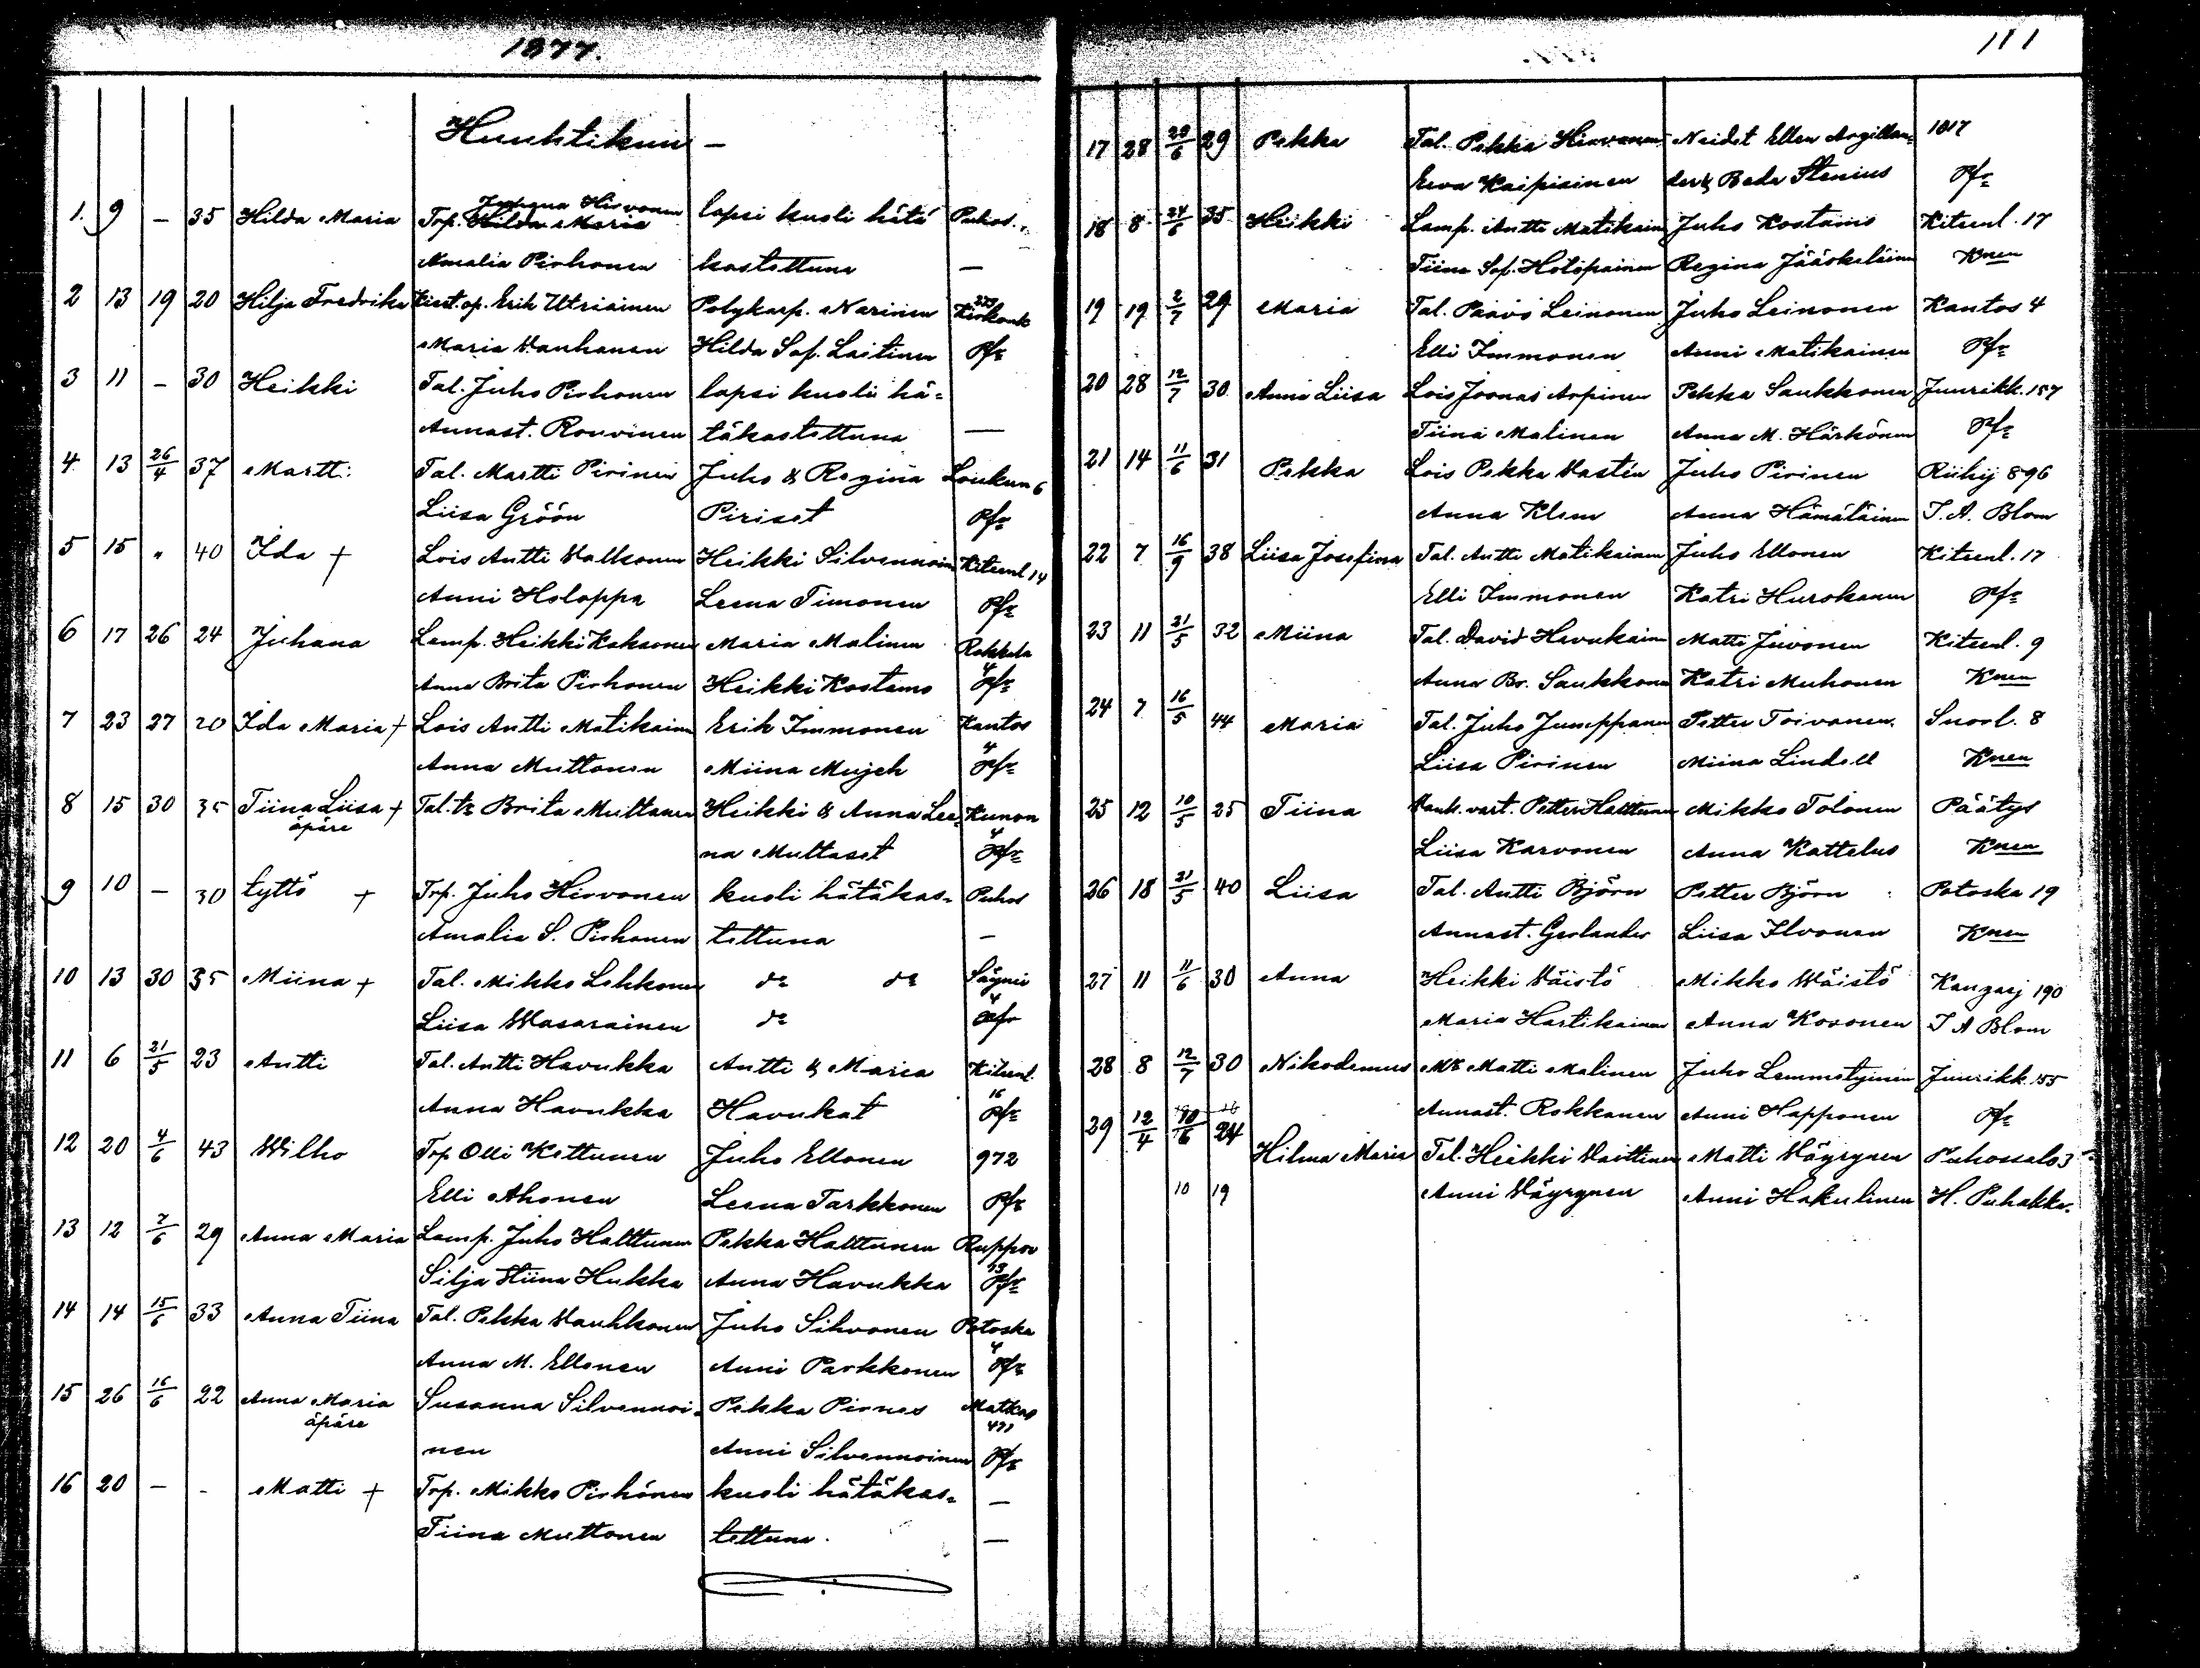 1877.
Huuhtikuu –
1. 9 – 35 Hilda Maria Trp. Hilda Maria Hirvonen lapsi kuoli hätä Puhos.
Amalia Pirhonen kastettuna –
2 13 19 20 Hilja Fredrika Kiert.op. Erik Utriainen Polykarp. Narinen Kirkonk
Maria Vanhanen Hilda Sof. Laitinen Pfr
3 11 – 30 Heikki Tal. Juho Pirhonen lapsi kuoli hä-
Annast. Rouvinen täkastettuna –
4 13 26/4 37 Martti Tal. Martti Pirinen Juho & Regina Loukun 6
Liisa Gröön Piriset Pfr
5 15 " 40 Ida + Lois Antti Valkonen Heikki Silvennoin Kiteenl 14
Anni Holoppa Leena Timonen Pfr
6 17 26 24 Juhana Lamp. Heikki Kaksonen Maria Malinen Rokkala 4
Anna Brita Pirhonen Heikki Kostamo Pfr
7 23 27 20 Ida Maria + Lois Antti Matikainen Erik Immonen Kantos 4
Anna Muttonen Miina Mujeh Pfr
8 15 30 35 Tiina Liisa + Tal.tr Brita Multanen Heikki & Anna Lee- Kunon 4
äpäre na Multaset Pfr
9 10 – 30 tyttö + Trp. Juho Hirvonen kuoli hätäkas- Puhos
Amalia S. Pirhonen tettuna –
10 13 30 35 Miina + Tal. Mikko Lehkonen do do Säynei 4
Liisa Wasarainen do Pfr
11 6 21/5 23 Antti Tal. Antti Havukka Antti & Maria Kiteenl. 16
Anna Havukka Havukat Pfr
12 20 4/6 43 Wilho Trp Olli Kettunen Juho Ellonen 972
Elli Ahonen Leena Tarkkonen Pfr
13 12 7/6 29 Anna Maria Lamp. Juho Halttunen Pekka Halttunen Ruppov 13
Silja Stiina Hukka Anna Havukka Pfr
14 14 15/6 33 Anna Tiina Tal. Pekka Vauhkonen Juho Sihvonen Potoska 4
Anna M. Ellonen Anni Parkkonen Pfr
15 26 16/6 22 Anna Maria Susanna Silvennoi- Pekka Pirnes Matkas 471
äpäre nen Anni Silvennoinen Pfr
16 20 – - Matti + Trp. Mikko Pirhonen kuoli hätäkas- –
Tiina Muttonen tettuna. –
111
17 28 29/6 29 Pekka Tal. Pekka Hirvonen Neidet Ellen Argillan- 1017
Eeva Kaipiainen der & Beda Stenius Pfr
18 8 24/6 35 Heikki Lamp. Antti Matikain Juho Kostamo Kiteenl. 17
Tiina Sof. Holopainen Regina Jääskeläinen Knen
19 19 2/7 29 Maria Tal. Paavo Leinonen Juho Leinonen Kantos 4
Elli Immonen Anni Matikainen Pfr
20 28 12/7 30 Anna Liisa Lois Joonas Arpinen Pekka Saukkonen Juurikk. 157
Tiina Malinen Anna M. Härkönen Pfr
21 14 11/6 31 Pekka Lois Pekka Vastén Juho Pirinen Riihij 896
Anna Klem Anna Hämäläinen J. A. Blom
22 7 16/9 38 Liisa Josefina Tal. Antti Matikainen Juho Ellonen Kiteenl. 17
Elli Immonen Katri Hurskanen Pfr
23 11 21/5 32 Miina Tal. David Havukain Matti Juvonen Kiteenl. 9
Anna Br. Saukkonen Katri Muhonen Knen
24 7 16/5 44 Maria Tal. Juho Jumppanen Petter Toivanen Suorl. 8
Liisa Pirinen Miina Lindell Knen
25 12 10/5 25 Tiina Vank. vart. Petter Halttunen Mikko Tolonen Päätys
Liisa Karvonen Anna Kattelus Knen
26 18 21/5 40 Liisa Tal. Antti Björn Petter Björn Potoska 19
Annast. Gerlander Liisa Ilvonen Knen
27 11 11/6 30 Anna Heikki Väistö Mikko Wäistö Kangasj 190
Maria Hartikainen Anna Kovonen J A Blom
28 8 12/7 30 Nikodemus Mk Matti Malinen Juho Lemmetyinen Juurikk. 155
Annast. Rokkanen Anni Happonen Pfr
29 12/4 10/6 24 Hilma Maria Tal. Heikki Vaittinen Matti Väyrynen Puhossalo 3
10 19 Anni Väyrynen Anni Hakulinen H. Puhakka.